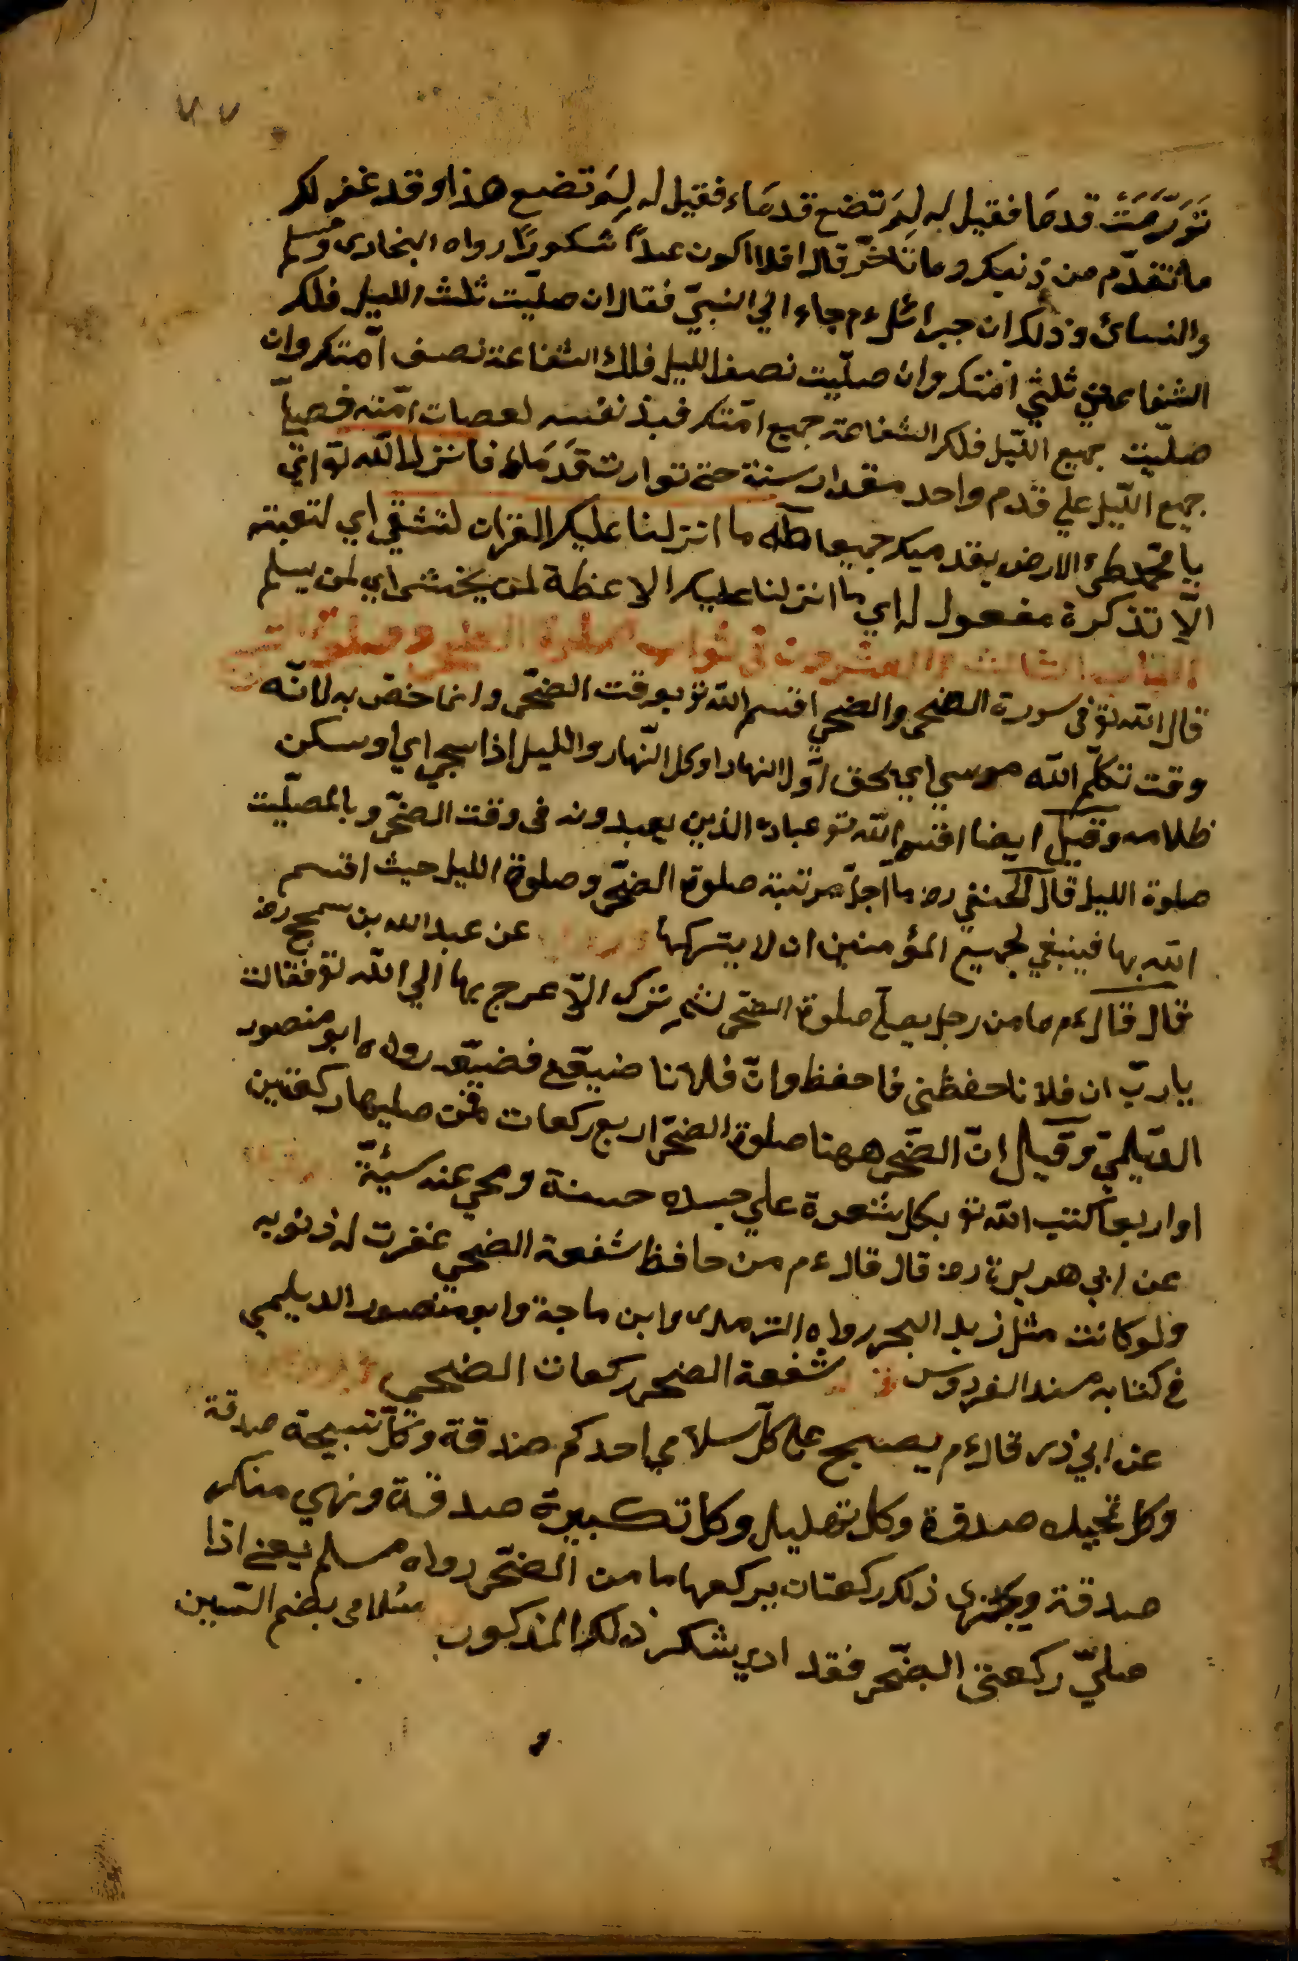 ٧٧
تَوَرَّمَتْ قدمَا فقيل له لِمَ تضع قدمَاء فقيل له لِمَ تضع هذا وقد غفر لك
ما تقدّم من ذنبك وما تأخّر قال افلا اكون عبداً شكوراً رواه البخارى ومسلم
والنسائ وذلك ان جبرائل ءم جاء الي النبيّ فقال ان صلّيت ثلث الليل فلك
الشفاعة في ثلثي امّتك وان صلّيت نصف الليل فلك الشفاعة نصف امّتك وان
صلّيت جميع اللّيل فلك الشفاعة جميع امّتك فبذ نفسه لعصات امّته فصلّي
جميع اللّيل علي قدم واحد مقدار سنة حتي فانزل الله تو اتي
يا محمّد طئ الارض بقدميك جميعا طه ما انزلنا عليك القران لتشقي اي لتعبته
الّا تذكرة مفعول له اي ما انزلنا عليك الا عظة لمن يخشى اي لمن يسلم
الباب الثالث والعشرون في ثواب صلوة الضحي
قال الله تو في سورة الضحى والضحى اقسم الله تو بوقت الضحّى وانما خصّ به لانّه
وقت تكلّم الله موسي اي بحق اوّل النهار او كل النّهار والليل اذا سجي اي او سكن
ظلامه وقيل ايضا اقسم الله تو عباده الذين يعبدونه فى وقت الضحّى وبالمصلّيت
صلوة الليل قال الحنفي رح ما اجلّ مرتبة صلوة الضحّى وصلوة الليل حيث اقسم
الله بها فينبغي لجميع المؤمنين ان لا يتركها عن عبد الله بن سمج رض
قال قال ءم ما من رجل يصلّي صلوة الضحّى ثم ترك الّا عرج بها الي الله تو فقالت
يا ربّ ان فلانا حفظني فاحفظ وانّ فلانا ضيّع فضيّعه رواه ابو منصور
الدّيلميّ وقيل انّ الضحّى ههنا صلوة الضحّى اربع ركعات فمن صليها ركعتين
او اربعا كتب الله تو بكل شعرة علي جسده حسنة ومحي عنه سيّئة
عن ابي هريرة رض قال قال ءم من حافظ شفعة الضحي غفرت له ذنوبه
ولو كانت مثل زبد البحر رواه الترمذى وابن ماجة وابو منصور الديلمي
في كتابه مسند الفردوس شفعة الضحى ركعات الضحى
عن ابي ذر قال ءم يصبح علي كلّ سلامي احدكم صدقة وكلّ تسبيحة صدقة
وكل تحميد صدقة وكل تهليل وكل تكبيرة صدقة ونهي منكر
صدقة ويجزى ذلك ركعتان يركعهما من الضحّى رواه مسلم يعني اذا
صلّي ركعتى الضحّى فقد ادي شكر ذلك المذكور سُلامى بضم السّين